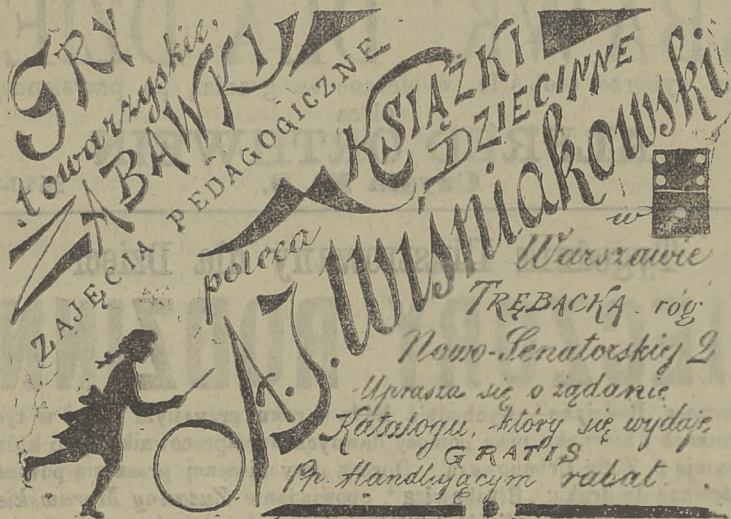 GRY
towarzyskie,
ZABAWKI
ZAJĘCIA PEDAGOGICZNE
KSIĄŻKI
DZIECINNE
poleca
A. J. Wiśniakowski
w
Warszawie
TRĘBACKA róg
Nowo-Senatorskiej 2
Uprasza się o żądanie
Katalogu, który się wydaje
GRATIS
Pp. Handlującym rabat.